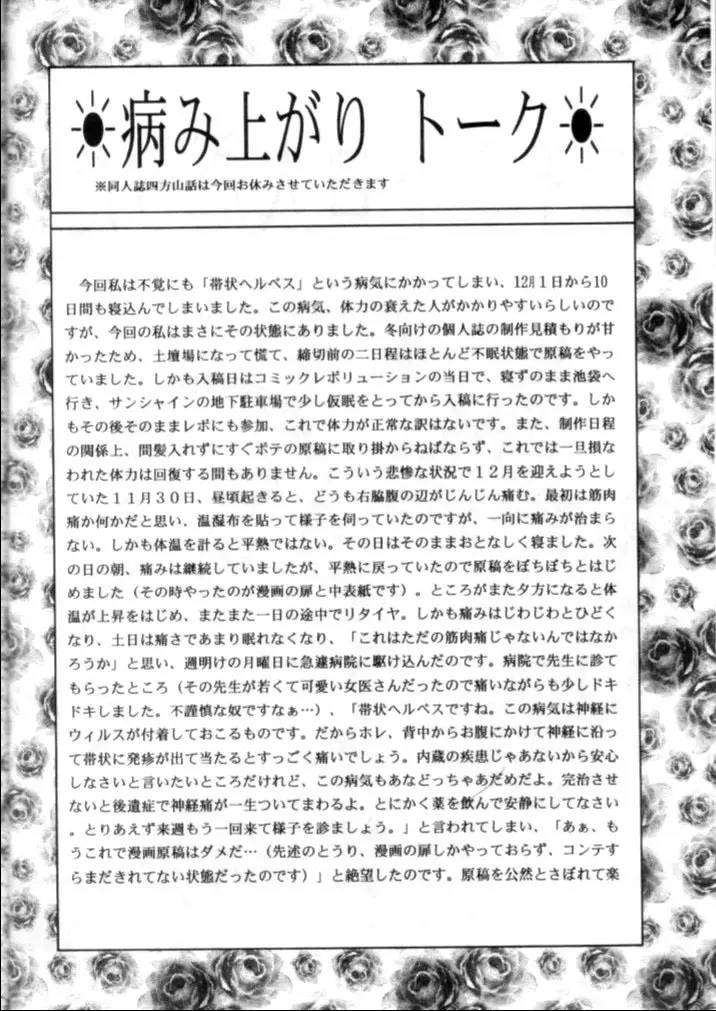 病み上がり トーク
※同人誌四方山話は今回お休みさせていただきます
今回私は不覚にも「帯状ヘルペス」という病気にかかってしまい、12月1日から10
日間も寝込んでしまいました。この病気、体力の衰えた人がかかりやすいらしいので
すが、今回の私はまさにその状態にありました。冬向けの個人誌の制作見積もりが甘
かったため、土壇場になって慌て、締切前の二日程はほとんど不眠状態で原稿をやっ
ていました。しかも入稿日はコミックレボリューションの当日で、寝ずのまま池袋へ
行き、サンシャインの地下駐車場で少し仮眠をとってから入稿に行ったのです。しか
もその後そのままレボにも参加、これで体力が正常な訳はないです。また、制作日程
の関係上、間髪入れずにすぐポテの原稿に取り掛からねばならず、これでは一旦損な
われた体力は回復する間もありません。こういう悲惨な状況で12月を迎えようとし
ていた11月30日、昼頃起きると、どうも右脇腹の辺がじんじん痛む。最初は筋肉
痛か何かだと思い、温湿布を貼って様子を伺っていたのですが、一向に痛みが治まら
ない。しかも体温を計ると平熱ではない。その日はそのままおとなしく寝ました。次
の日の朝、痛みは継続していましたが、平熱に戻っていたので原稿をぼちぼちとはじ
めました（その時やったのが漫画の扉と中表紙です）。ところがまた夕方になると体
温が上昇をはじめ、またまた一日の途中でリタイヤ。しかも痛みはじわじわとひどく
なり、土日は痛さであまり眠れなくなり、「これはただの筋肉痛じゃないんではなか
ろうか」と思い、週明けの月曜日に急遽病院に駆け込んだのです。病院で先生に診て
もらったところ（その先生が若くて可愛い女医さんだったので痛いながらも少しドキ
ドキしました。不謹慎な奴ですなぁ…）、「帯状ヘルペスですね。この病気は神経に
ウィルスが付着しておこるものです。だからホレ、背中からお腹にかけて神経に沿っ
て帯状に発疹が出て当たるとすっごく痛いでしょう。内蔵の疾患じゃあないから安心
しなさいと言いたいところだけれど、この病気もあなどっちゃあだめだよ。完治させ
ないと後遺症で神経痛が一生ついてまわるよ。とにかく薬を飲んで安静にしてなさい
。とりあえず来週もう一回来て様子を診ましょう。」と言われてしまい、「あぁ、も
うこれで漫画原稿はダメだ…（先述のとうり、漫画の扉しかやっておらず、コンテす
らまだきれてない状態だったのです）」と絶望したのです。原稿を公然とさぼれて楽